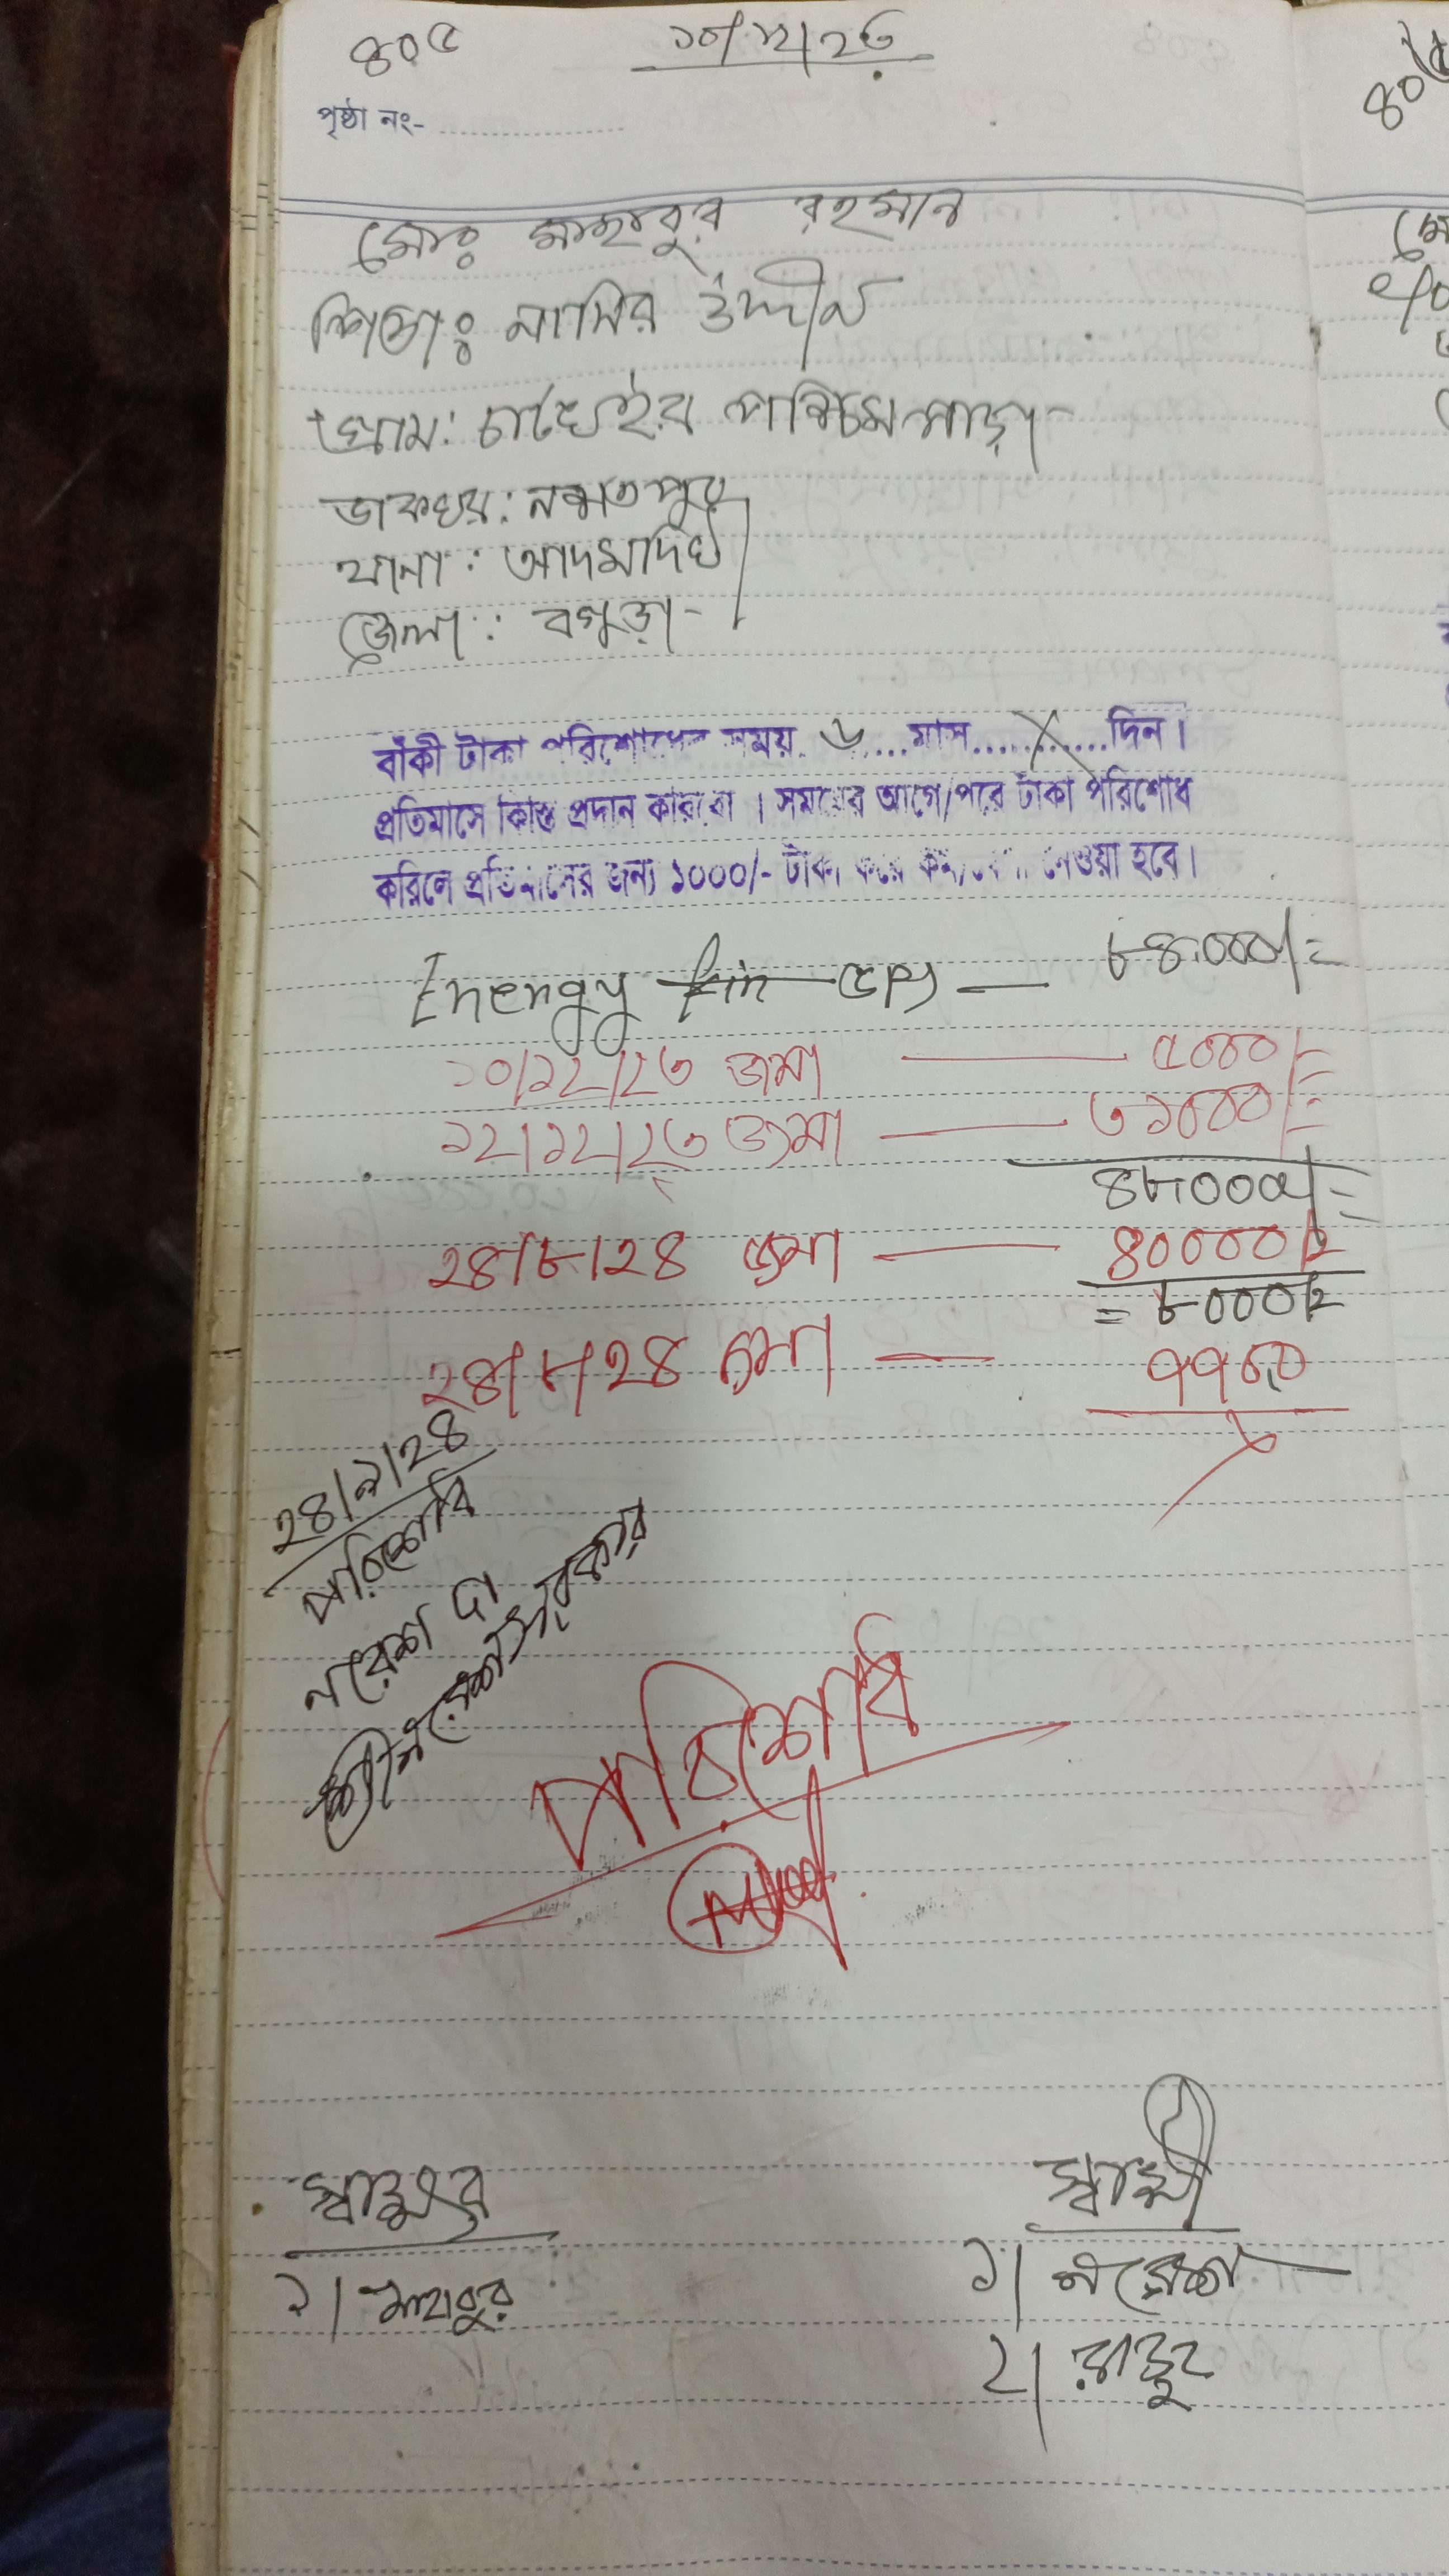 ৪০৫
১০/১২/২৩
পৃষ্ঠা নং-
মোঃ মাহাবুর রহমান
পিতাঃ নাসির উদ্দীন
গ্রাম: চাটখইর পশ্চিম পাড়া
ডাকঘর: নশরতপুর
থানা: আদমদিঘী
জেলা: বগুড়া
বাঁকী টাকা পরিশোধের সময় ৬ মাস X দিন।
প্রতিমাসে কিস্তি প্রদান করিবো। সময়ের আগে/পরে টাকা পরিশোধ
করিলে প্রতিমাসের জন্য ১০০০/- টাকা করে কম/বেশী নেওয়া হবে।
Energy — ৮৪,০০০/=
১০/১২/২৩ জমা — ৫০০০/=
১২/১২/২৩ জমা — ৩১০০০/=
৪৮,০০০/=
২৪/৮/২৪ জমা — ৪০০০০/=
= ৮০০০/=
২৪/৮/২৪ জমা — ৭৭৫০
২৪/৯/২৪
পরিশোধ
নরেশ দা
শ্রী নরেশ সরকার
পরিশোধ
স্বাক্ষর
১। মাহাবুর
স্বাক্ষী
১। নরেশ
২।